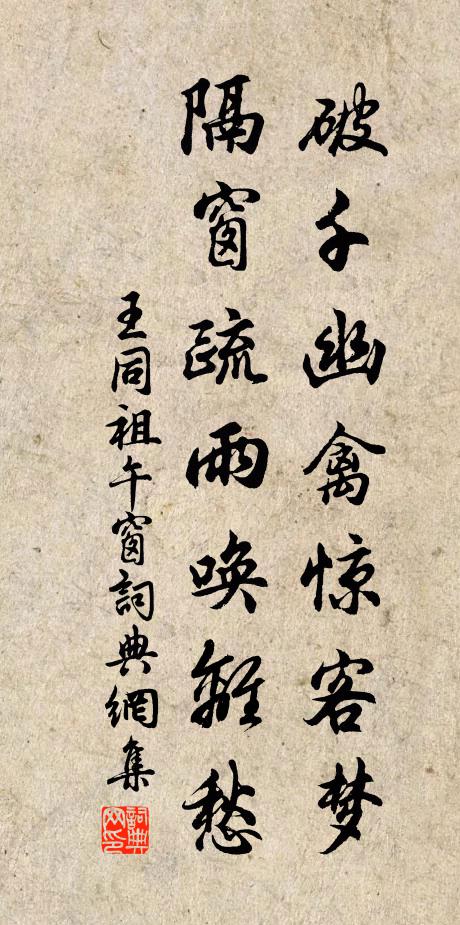 破千幽禽惊客梦
隔窗疏雨唤離愁
王同祖午窗詞典網集
詞典网印